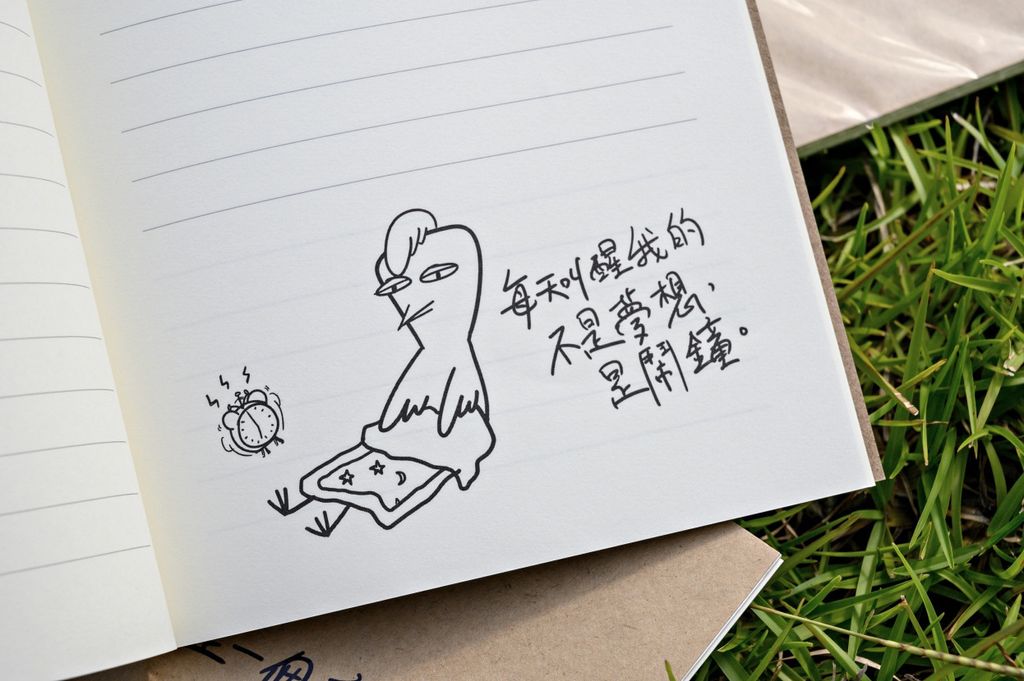 每天叫醒我的
不是夢想、
是鬧鐘。